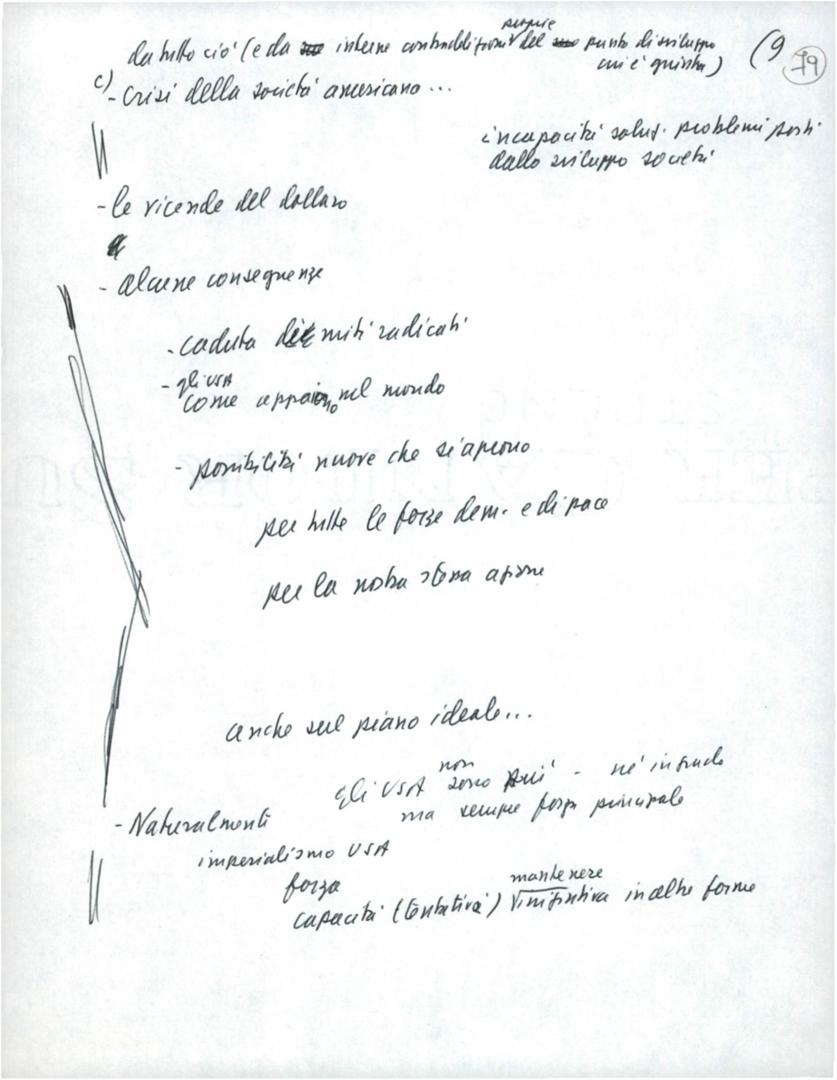 proprie
da tutto ciò (e da interne contraddizioni del punto di sviluppo (9 79
cui è giunta)
c) - Crisi della società americana...
incapacità soluz. problemi posti
dallo sviluppo società
- le vicende del dollaro
- alcune conseguenze
- caduta di miti radicati
- gli USA
come appaiono nel mondo
- possibilità nuove che si aprono
per tutte le forze dem. e di pace
per la nostra stessa azione
anche sul piano ideale...
gli USA non sono più - né in grado
ma sempre forza principale
- Naturalmente
imperialismo USA
forza
mantenere
capacità (tentativi) iniziativa in altre forme